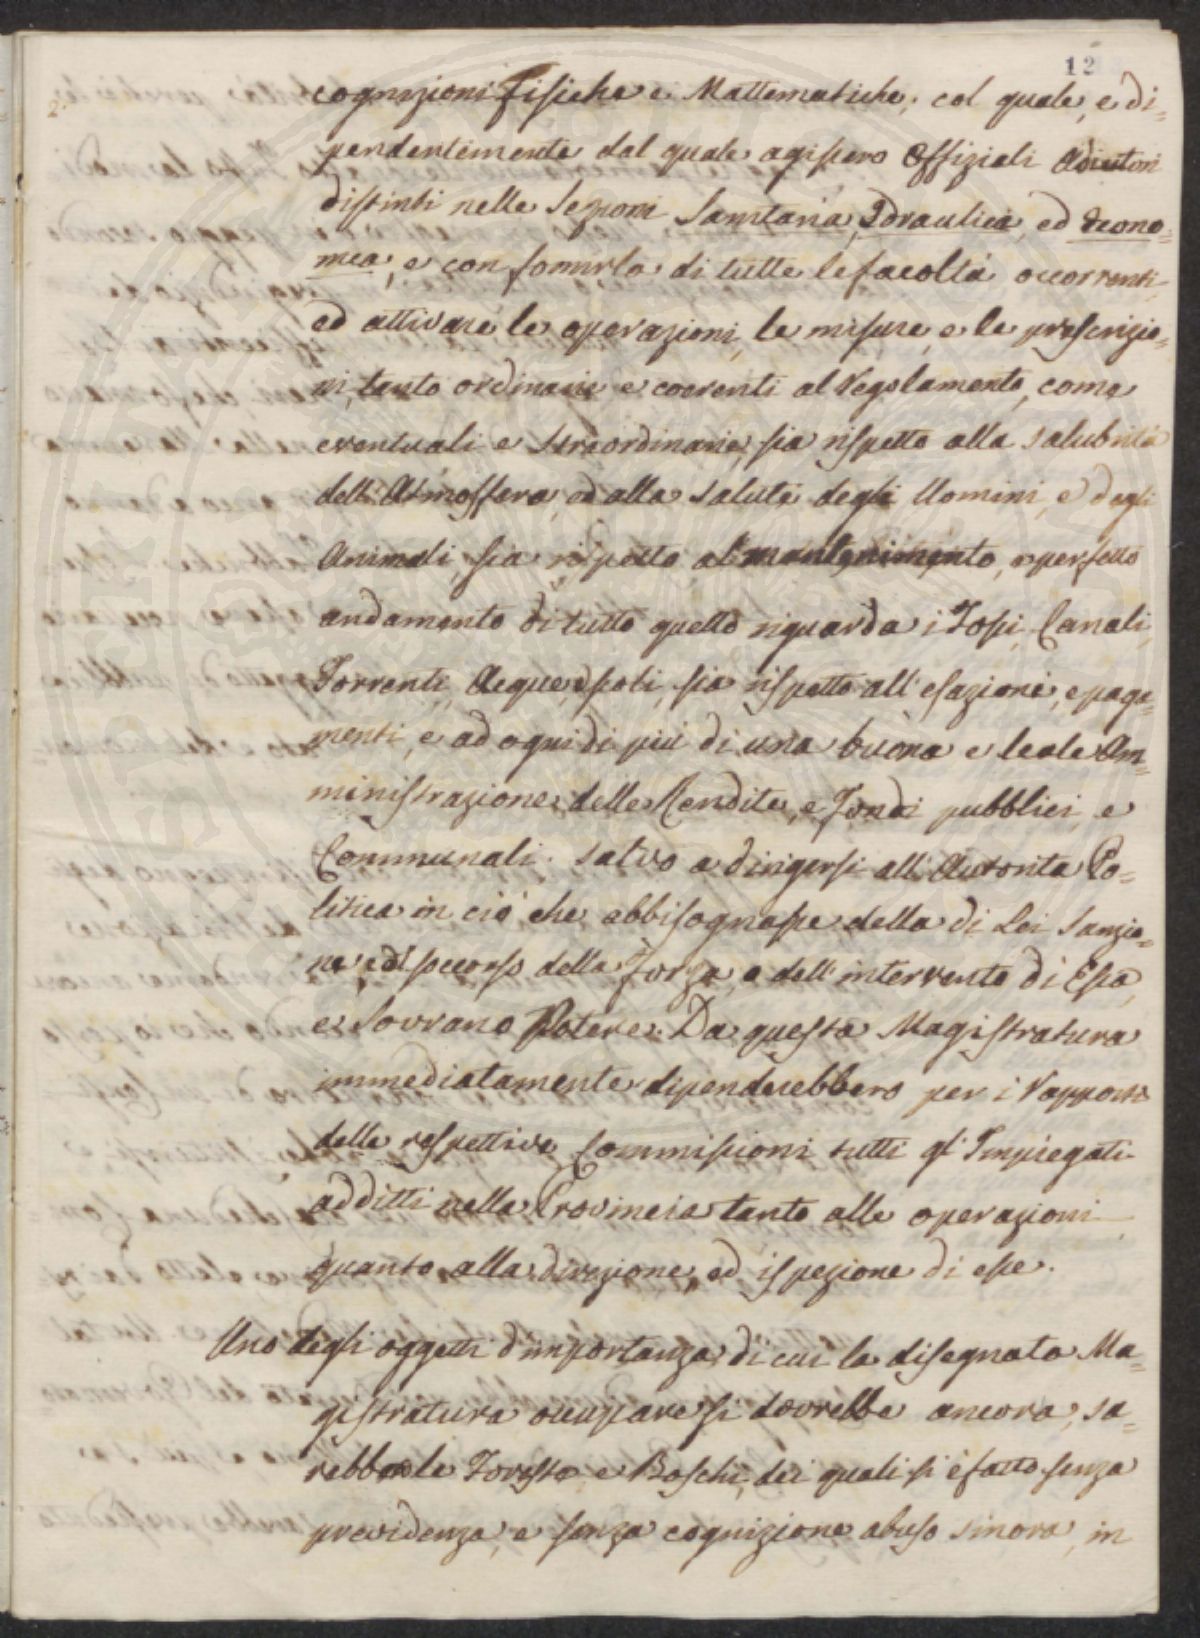 12
2.
cognizioni Fisiche e Mattematiche; col quale, e di=
pendentemente dal quale agissero Offiziali Adiutori
distinti nelle Sezioni Sanitaria, Idraulica, ed Econo=
mica, e con fornirla di tutte le facoltà occorrenti
ed attivare le operazioni, le misure, e le prescrizio=
ni, tanto ordinarie e coerenti al Regolamento, come
eventuali e straordinarie, sia rispetto alla salubrità
dell'Atmosfera, ed alla salute degli Uomini, e degli
Animali, sia rispetto al mantenimento, e perfetto
andamento di tutto quello riguarda i Fossi, Canali,
Torrenti, Acque, e scoli, sia rispetto all'esazione, e paga=
menti, e ad ogni di più di una buona e leale Am=
ministrazione delle Rendite, e Fondi pubblici, e
Communali; salvo a dirigersi all'Autorità Po=
litica in ciò che abbisognasse della di Lei Sanzio=
ne, ed soccorso della Forza, o dell'intervento di Essa,
e Sovrano Potere. Da questa Magistratura
immediatamente dipenderebbero per i Rapporti
delle respettive Commissioni tutti gl'Impiegati
additti nella Provincia tanto alle operazioni,
quanto alla direzione, ed ispezione di esse.
Uno degli oggetti d'importanza di cui la disegnata Ma=
gistratura occupare si dovrebbe ancora, sa=
rebbe le Foreste e Boschi, dei quali si è fatto senza
previdenza, e senza cognizione abuso sinora, in